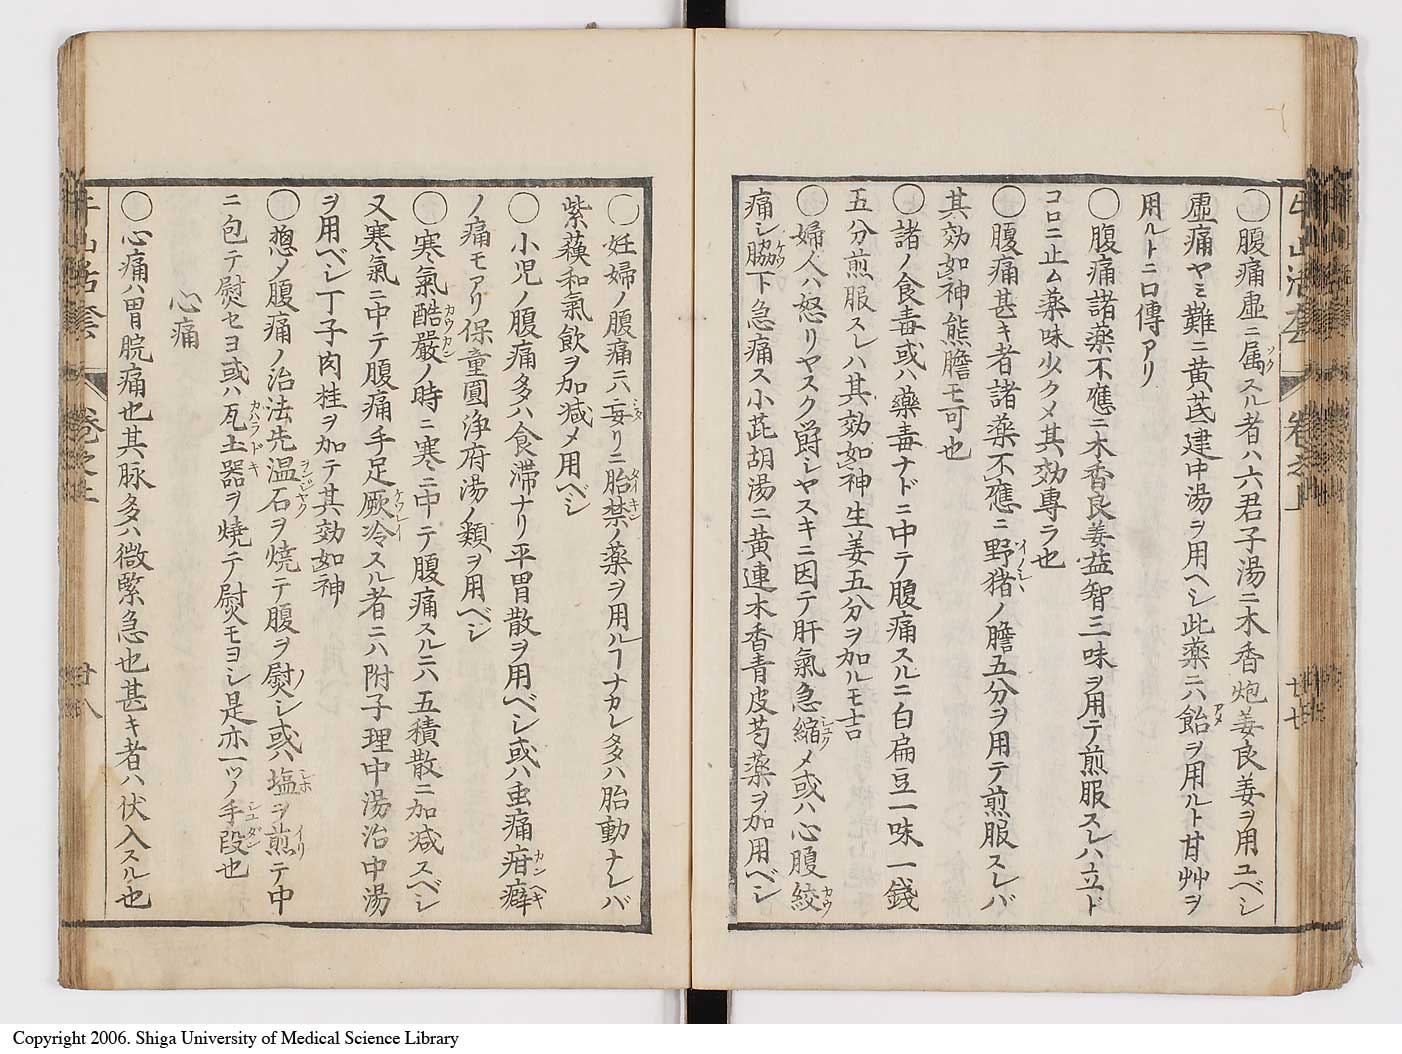 牛山活套 卷之上 廿七
○腹痛虚ニ属スル者ハ六君子湯ニ木香炮姜良姜ヲ用ユベシ
虚痛ヤミ難ニ黄芪建中湯ヲ用ヘシ此薬ニハ飴ヲ用ルト甘艸ヲ
用ルトニ口傳アリ
○腹痛諸薬不應ニ木香良姜益智三味ヲ用テ煎服スレハ立ド
コロニ止ム薬味少クメ其効專ラ也
○腹痛甚キ者諸薬不應ニ野猪ノ膽五分ヲ用テ煎服スレバ
其効如神熊膽モ可也
○諸ノ食毒或ハ藥毒ナドニ中テ腹痛スルニ白扁豆一味一錢
五分煎服スレハ其効如神生姜五分ヲ加ルモ吉
○婦人ハ怒リヤスク欝シヤスキニ因テ肝氣急縮メ或ハ心腹絞
痛シ脇下急痛ス小茈胡湯ニ黄連木香青皮芍薬ヲ加用ベシ
○妊婦ノ腹痛ニハ妄リニ胎禁ノ薬ヲ用ルヿナカレ多ハ胎動ナレバ
紫蘓和氣飲ヲ加減メ用ベシ
○小児ノ腹痛多ハ食滞ナリ平胃散ヲ用ベシ或ハ虫痛疳癖
ノ痛モアリ保童圓浄府湯ノ類ヲ用ベシ
○寒氣酷嚴ノ時ニ寒ニ中テ腹痛スルニハ五積散ニ加減スベシ
又寒氣ニ中テ腹痛手足厥冷スル者ニハ附子理中湯治中湯
ヲ用ベシ丁子肉桂ヲ加テ其効如神
○惣ノ腹痛ノ治法先温石ヲ焼テ腹ヲ熨シ或ハ塩ヲ煎テ巾
ニ包テ熨セヨ或ハ瓦土器ヲ焼テ熨モヨシ是亦一ツノ手段也
心痛
○心痛ハ胃脘痛也其脉多ハ微緊急也甚キ者ハ伏入スル也
牛山活套 卷之上 廿八
Copyright 2006. Shiga University of Medical Science Library